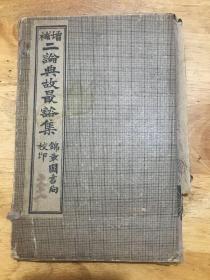 增補
二論典故最豁集
錦章圖書局
校印